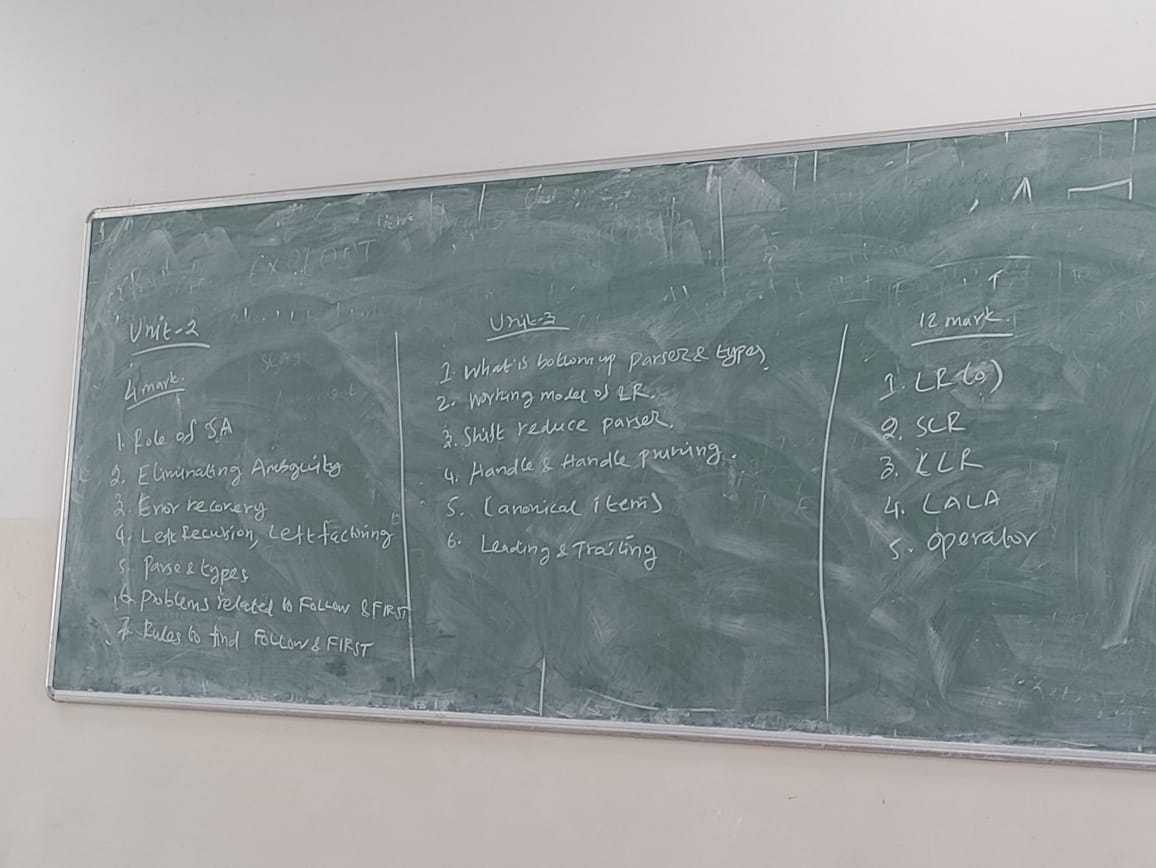 Unit-2
4 mark.
1. Role of SA
2. Eliminating Ambguity
3. Error recovery
4. Left Recursion, Left factoring
5. Parse & types
6. Problems related to FOLLOW & FIRST
7. Rules to find FOLLOW & FIRST
Unit-3
1. What is bottom up parser & types
2. Working model of LR.
3. Shift reduce parser.
4. Handle & Handle pruning.
5. Canonical items
6. Leading & Trailing
12 mark.
1. LR(0)
2. SLR
3. CLR
4. LALA
5. Operator